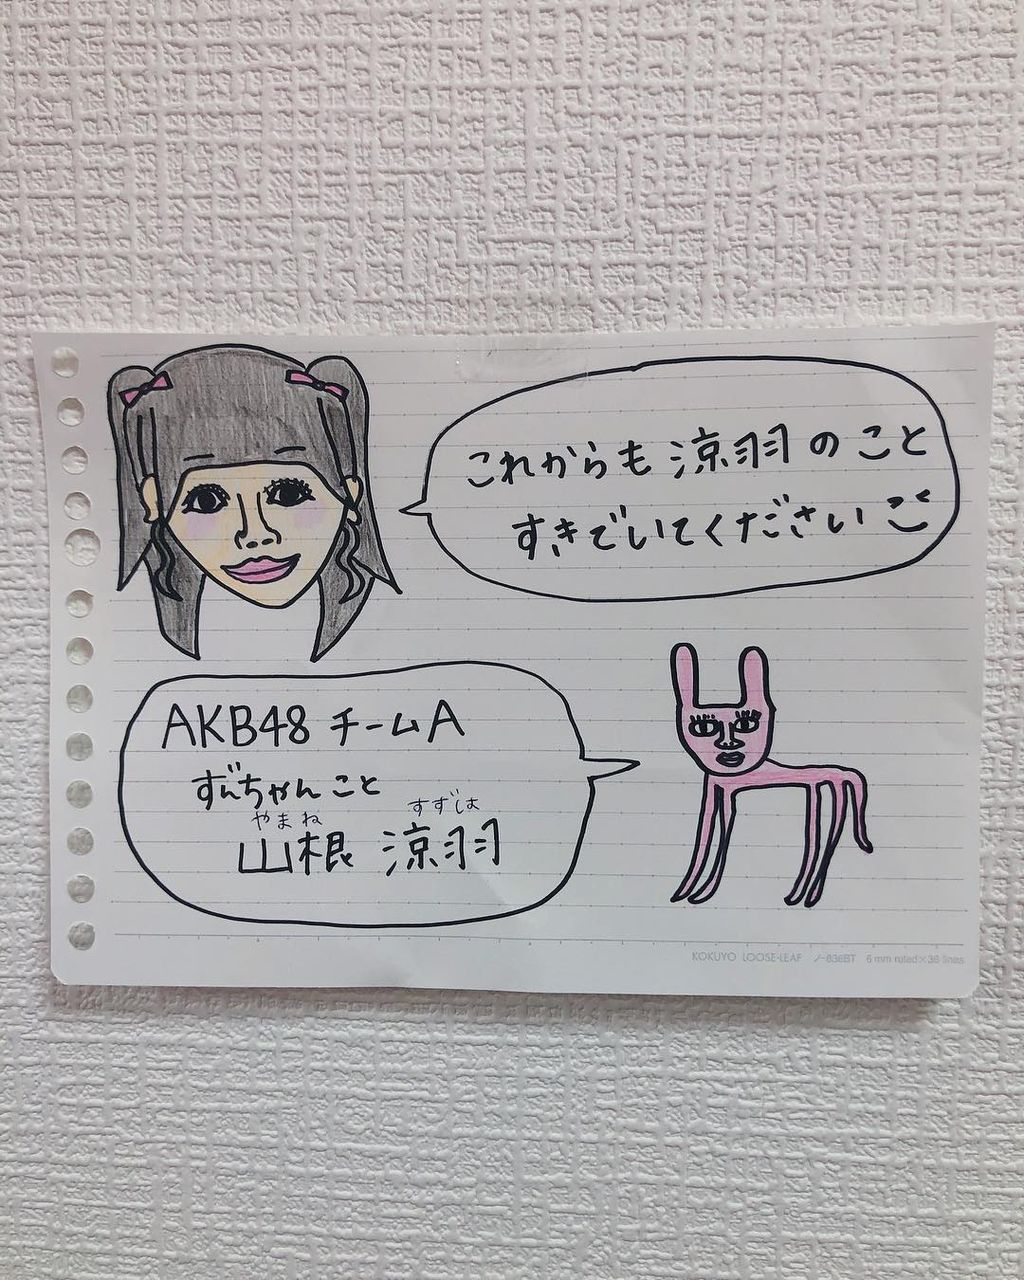 これからも 涼羽 の こと
すきでいてください
AKB48 チームA
ずんちゃん こと
やまね すずは
山根 涼羽
KOKUYO LOOSE-LEAF ノ-836BT 6 mm ruled×36 lines